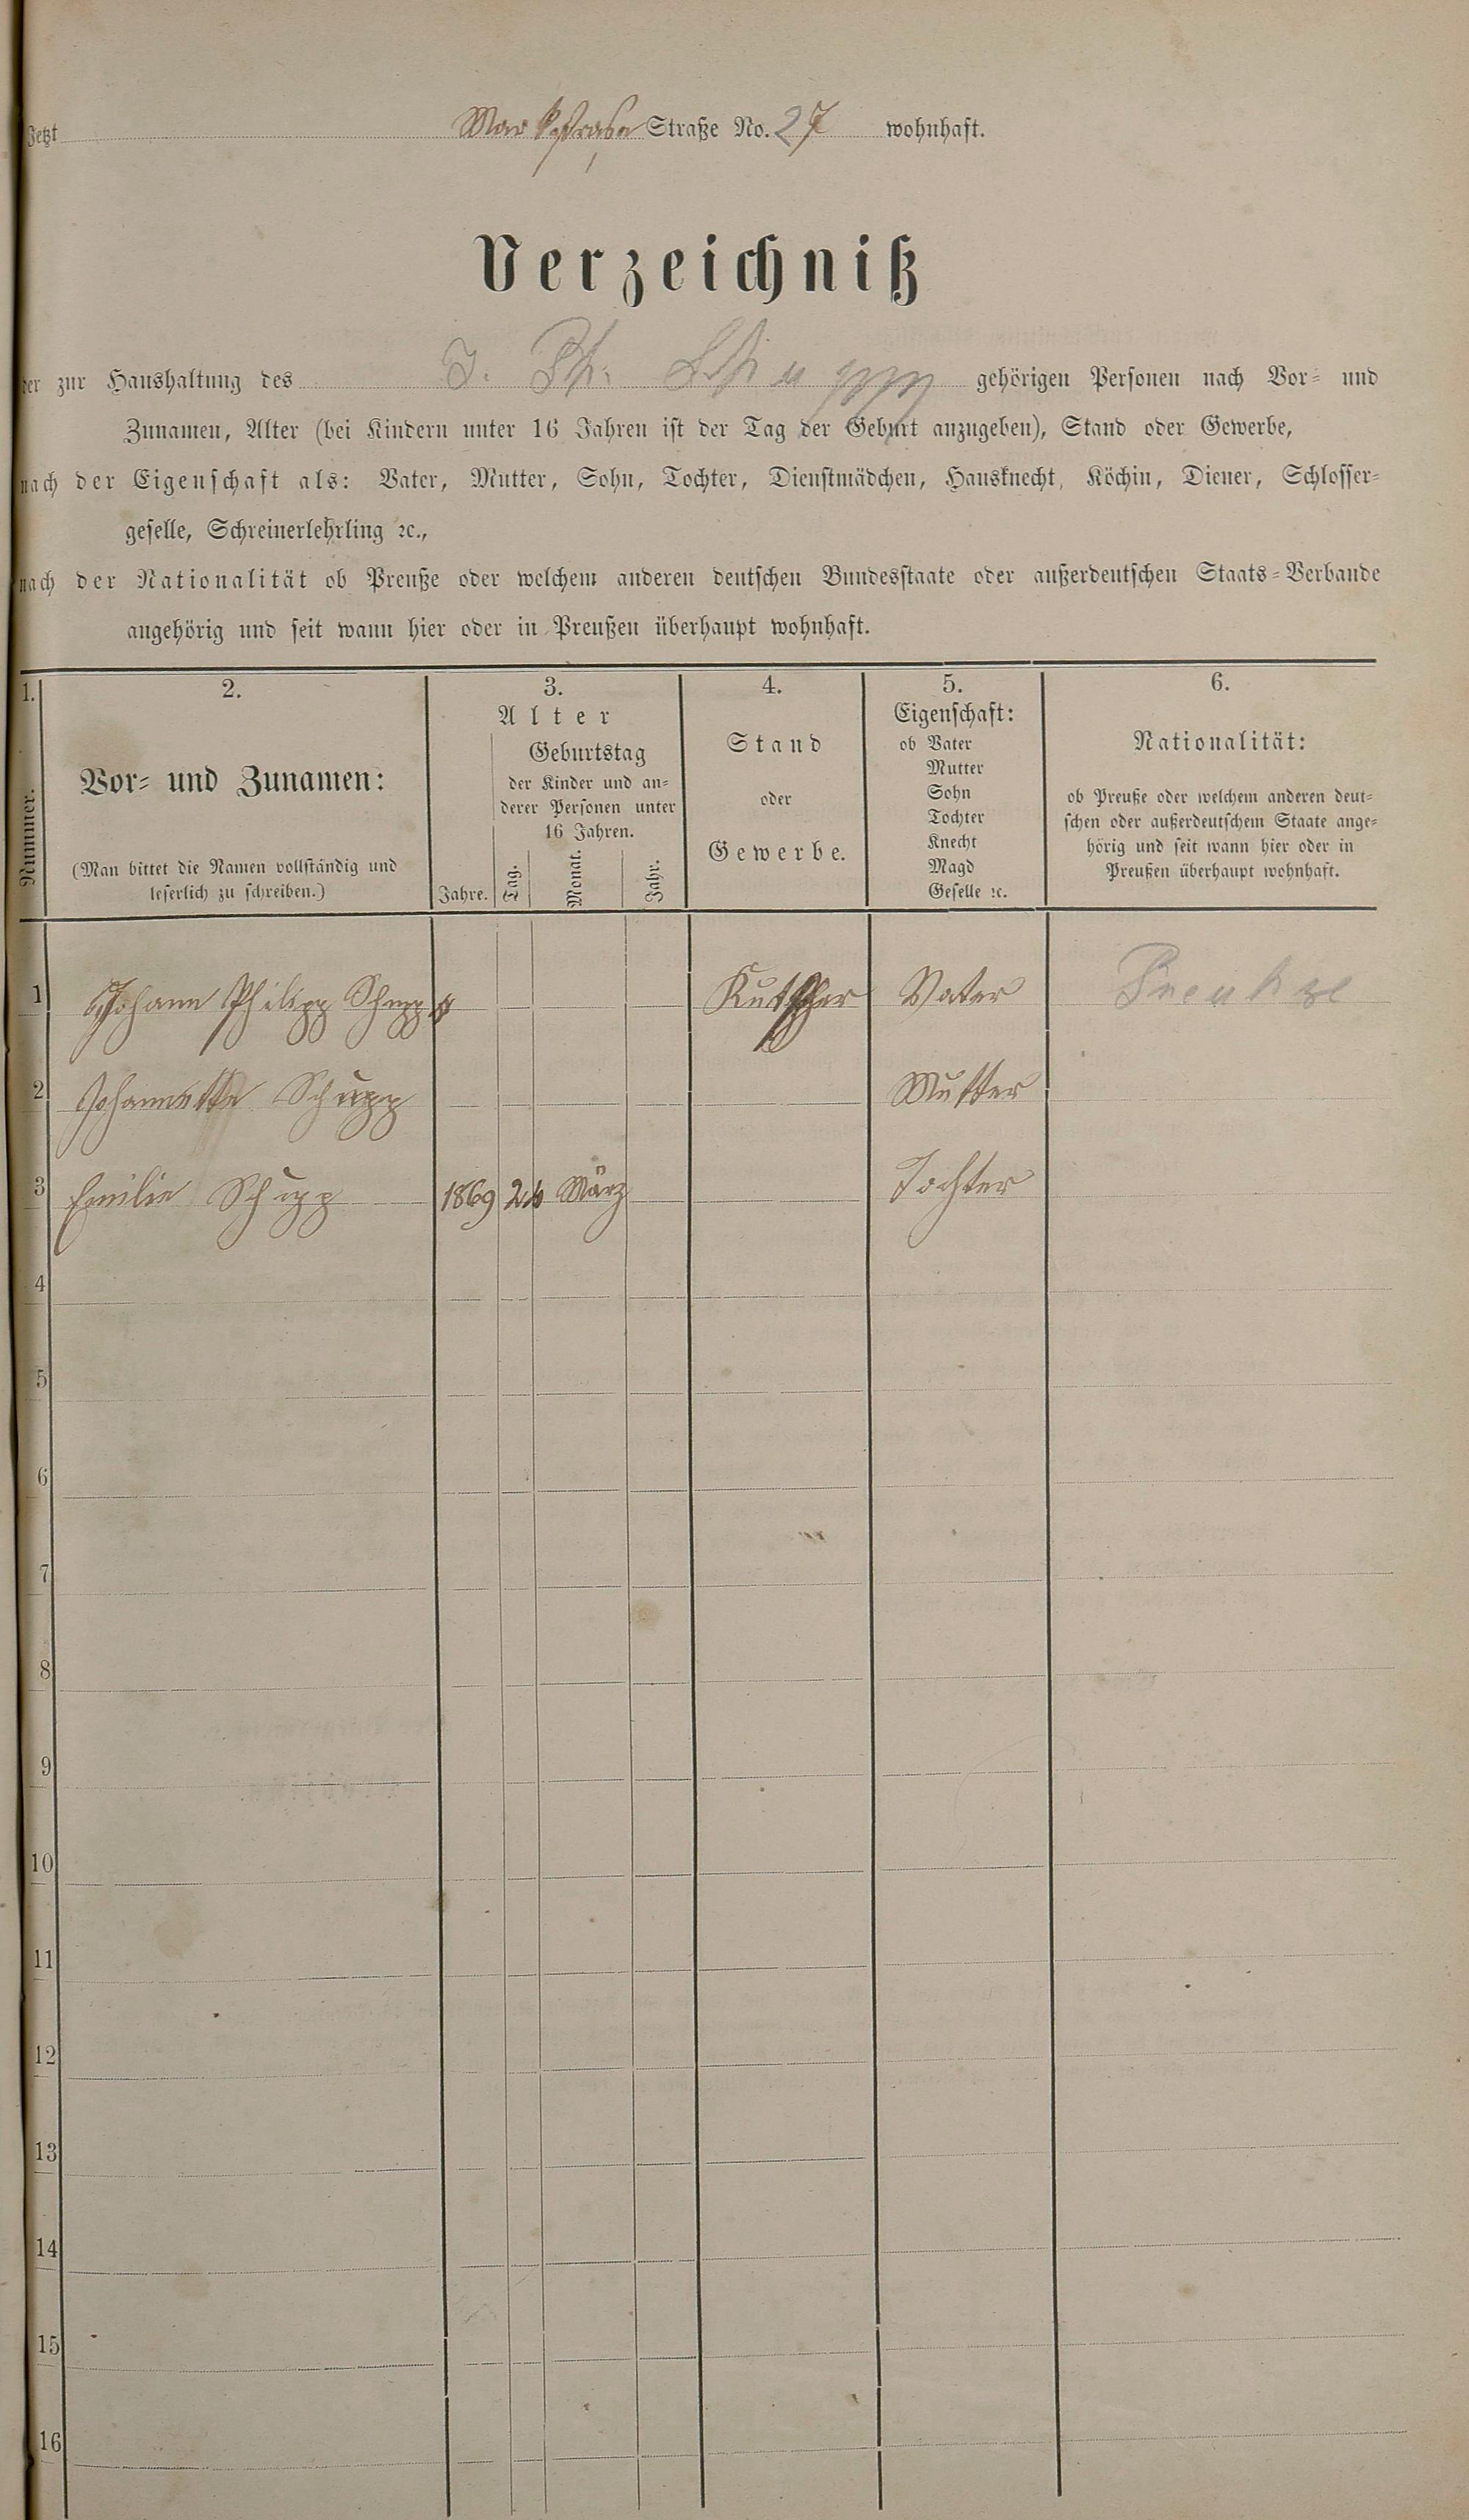 Jetzt Markstrase Straße No. 27 wohnhaft.
Verzeichniß
der zur Haushaltung des J. Ph. Schupp gehörigen Personen nach Vor- und
Zunamen, Alter (bei Kindern unter 16 Jahren ist der Tag der Geburt anzugeben), Stand oder Gewerbe,
nach der Eigenschaft als: Vater, Mutter, Sohn, Tochter, Dienstmädchen, Hausknecht, Köchin, Diener, Schlosser-
geselle, Schreinerlehrling ꝛc.,
nach der Nationalität ob Preuße oder welchem anderen deutschen Bundesstaate oder außerdeutschen Staats-Verbande
angehörig und seit wann hier oder in Preußen überhaupt wohnhaft.
1.
Nummer.
2.
Vor- und Zunamen:
(Man bittet die Namen vollständig und
leserlich zu schreiben.)
3.
Alter
Geburtstag
der Kinder und an-
derer Personen unter
16 Jahren.
Jahre. Tag. Monat. Jahr.
4.
Stand
oder
Gewerbe.
5.
Eigenschaft:
ob Vater
Mutter
Sohn
Tochter
Knecht
Magd
Geselle ꝛc.
6.
Nationalität:
ob Preuße oder welchem anderen deut-
schen oder außerdeutschem Staate ange-
hörig und seit wann hier oder in
Preußen überhaupt wohnhaft.
1 Johann Philipp Schupp Kutscher Vater Preuße
2 Johannette Schupp Mutter
3 Emilie Schupp 1869 24 März Tochter
4
5
6
7
8
9
10
11
12
13
14
15
16